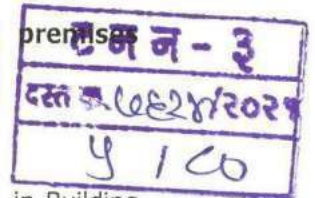 premises
टनन - ३
दस्त क्र. ७६२४/२०२१
५ / ८०
in Building